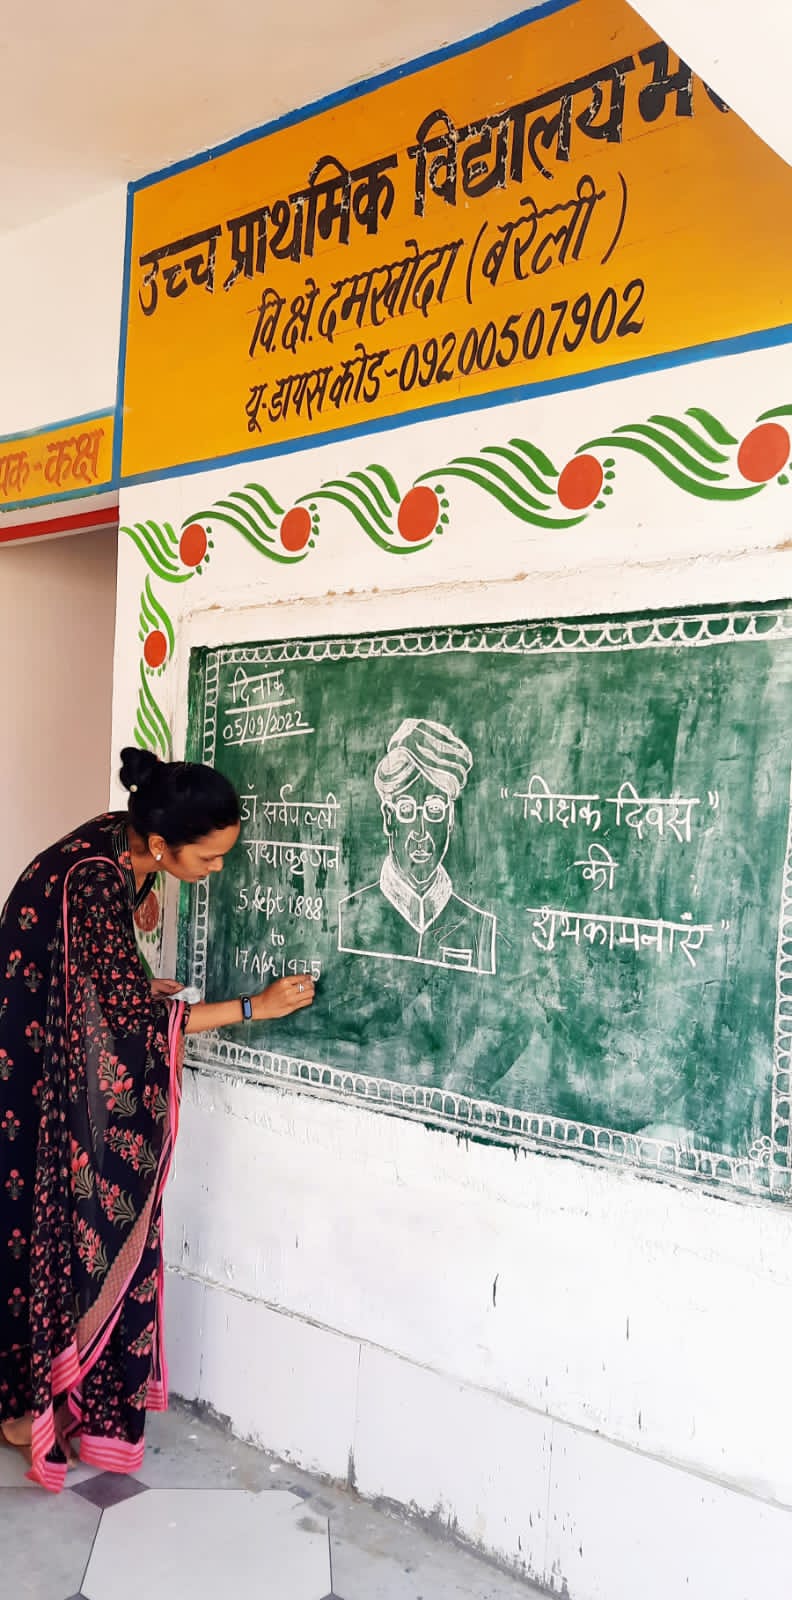 उच्च प्राथमिक विद्यालय
वि.क्षे. दमखोदा (बरेली)
यू-डायस कोड-09200507902
यक-कक्ष
दिनांक
05/09/2022
डॉ सर्वपल्ली
राधाकृष्णन
5 Sept 1888
to
17 Apr 1975
"शिक्षक दिवस"
की
शुभकामनाएं"